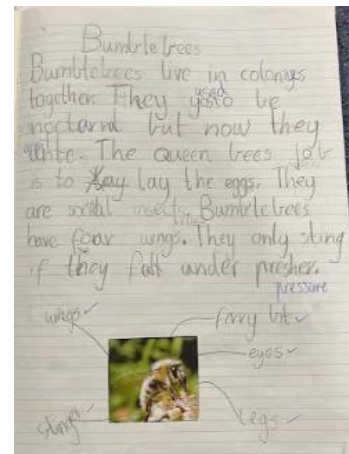 Bumblebees
Bumblebees live in colonys
together. They used to be
nocternal but now they
The queen bees job
is to lay the eggs. They
are social insects. Bumblebees
have four wings. They only sting
if they fall under presher.
pressure
wings
furry bit
eyes
sting
legs